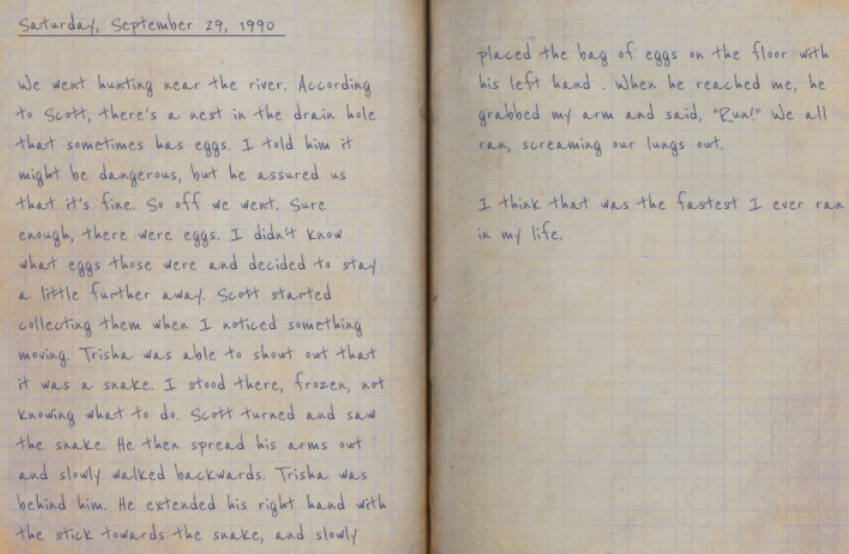 Saturday, September 29, 1990
We went hunting near the river. According
to Scott, there's a nest in the drain hole
that sometimes has eggs. I told him it
might be dangerous, but he assured us
that it's fine. So off we went. Sure
enough, there were eggs. I didn't know
what eggs those were and decided to stay
a little further away. Scott started
collecting them when I noticed something
moving. Trisha was able to shout out that
it was a snake. I stood there, frozen, not
knowing what to do. Scott turned and saw
the snake. He then spread his arms out
and slowly walked backwards. Trisha was
behind him. He extended his right hand with
the stick towards the snake, and slowly
placed the bag of eggs on the floor with
his left hand. When he reached me, he
grabbed my arm and said, "Run!" We all
ran, screaming our lungs out.
I think that was the fastest I ever ran
in my life.